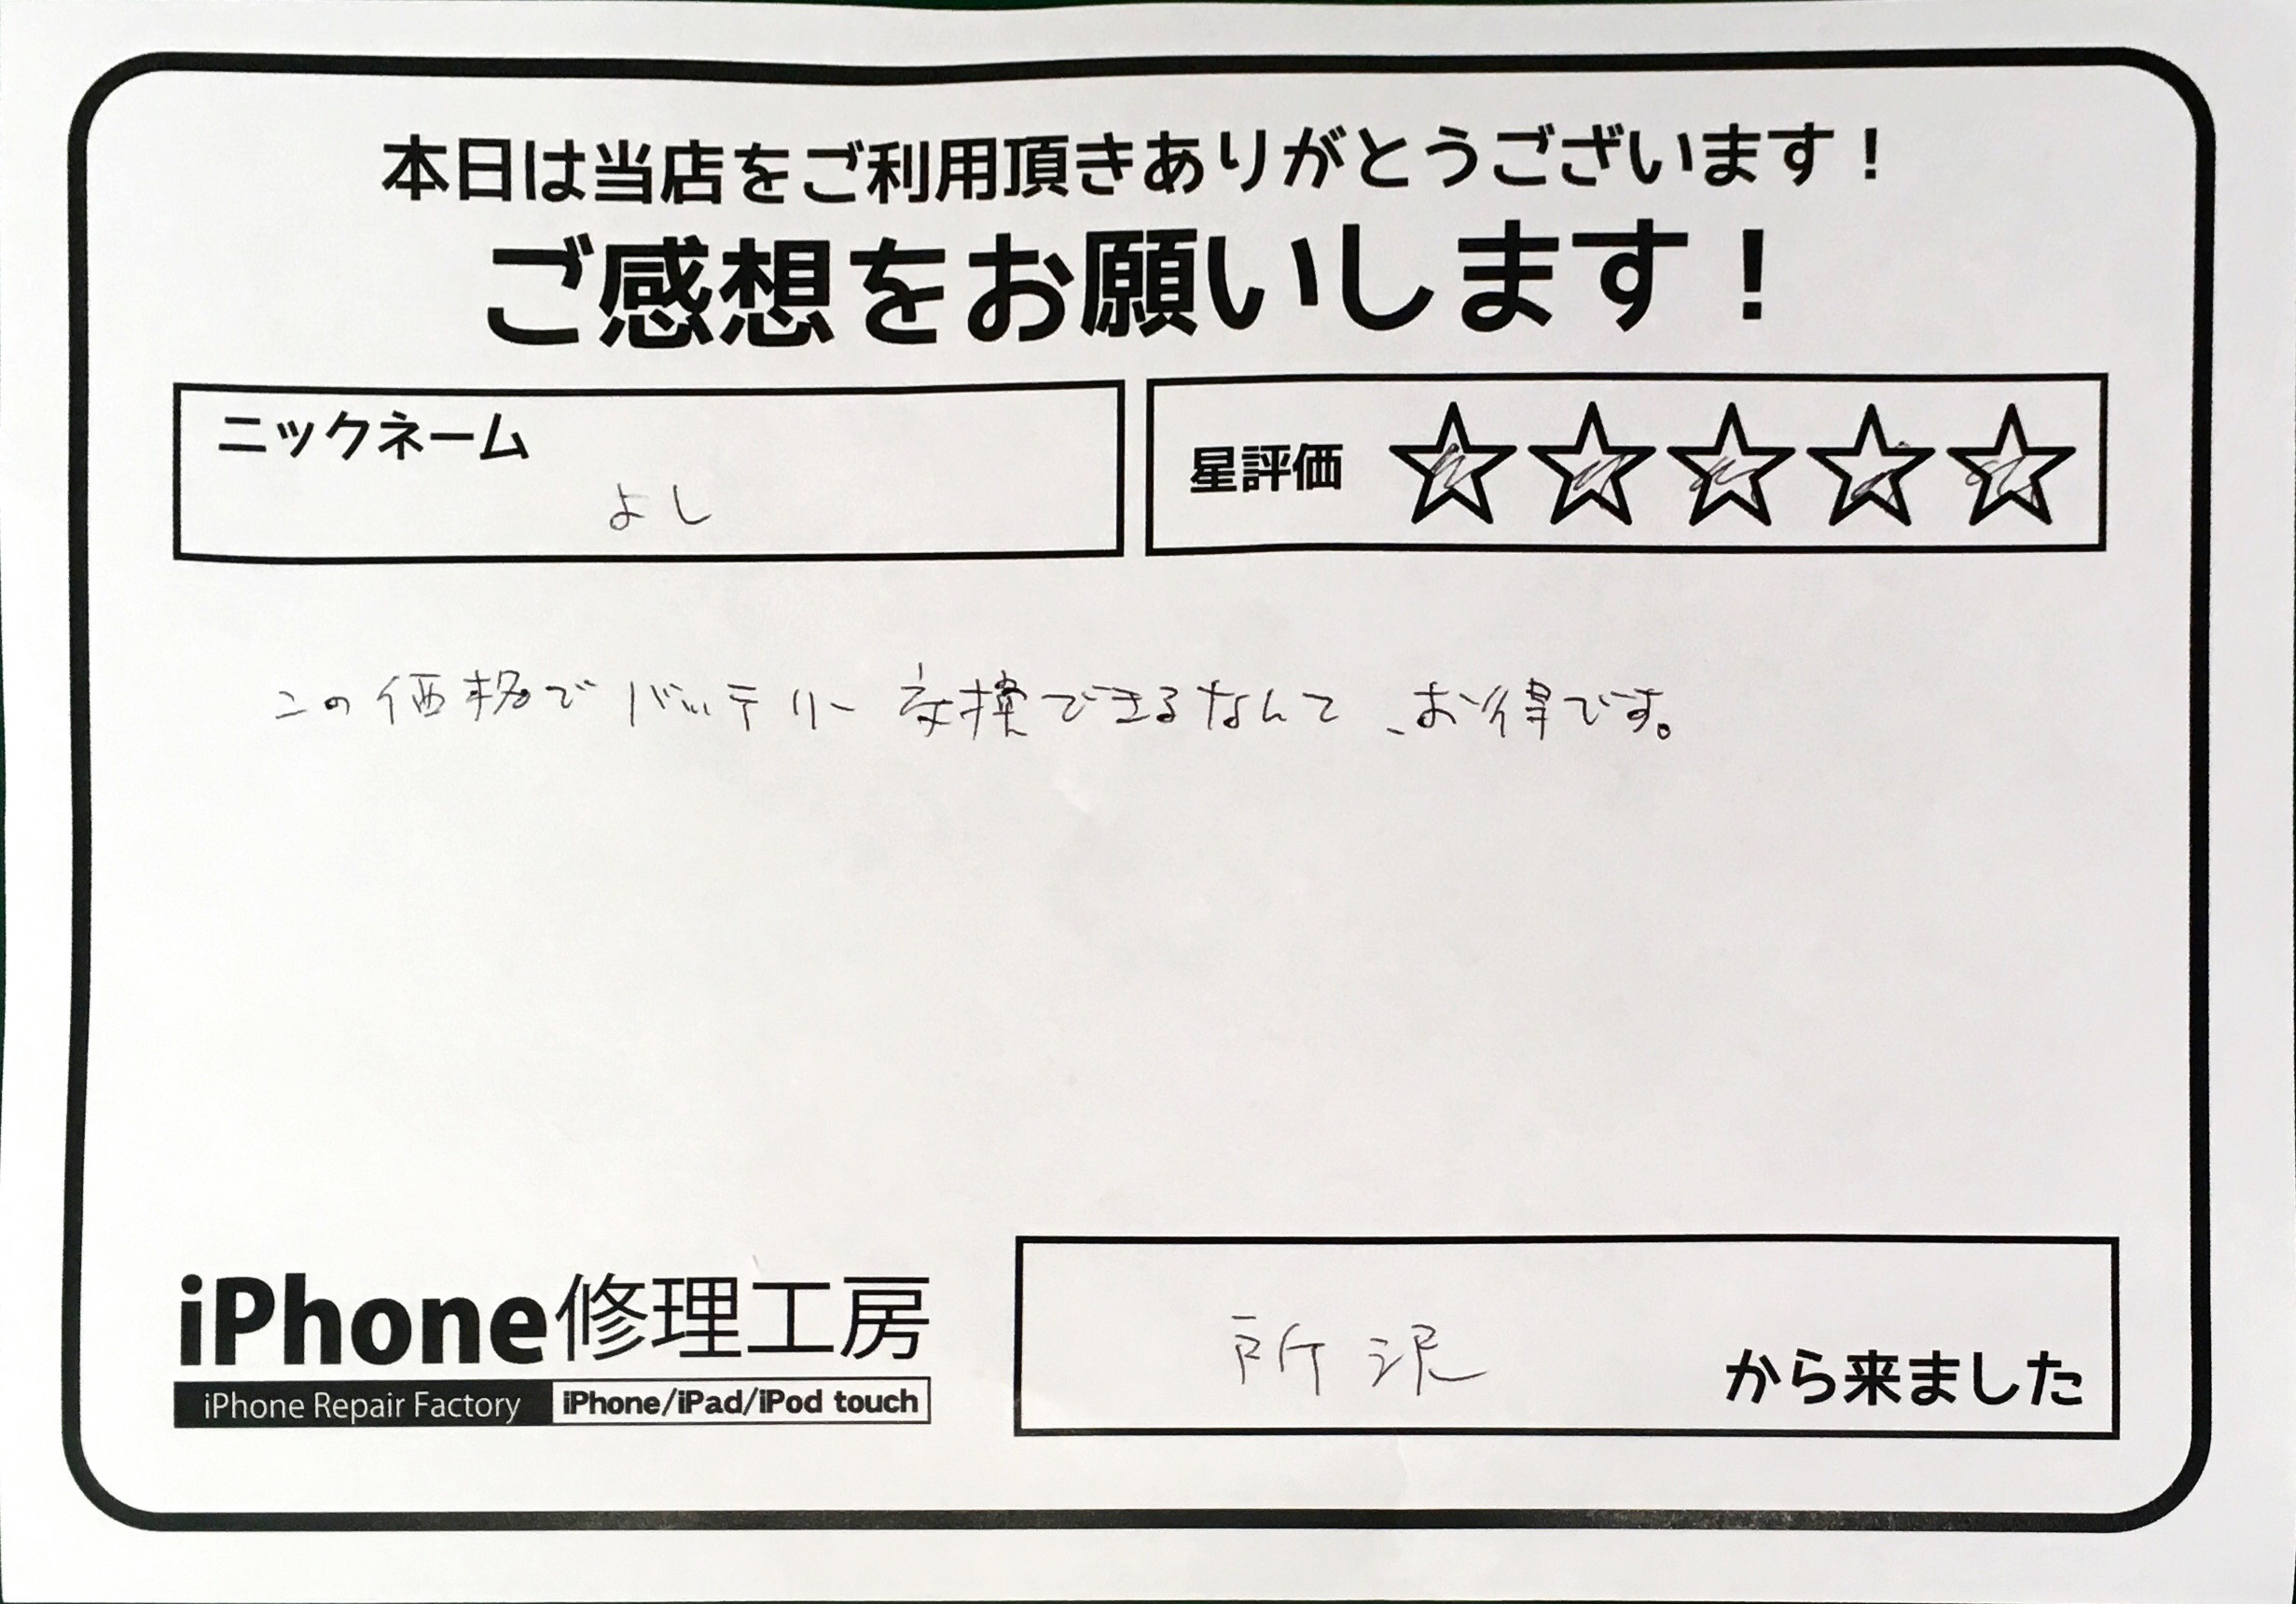 本日は当店をご利用頂きありがとうございます！
ご感想をお願いします！
ニックネーム
よし
星評価 ☆☆☆☆☆
この価格でバッテリー交換できるなんて、お得です。
iPhone修理工房
iPhone Repair Factory iPhone/iPad/iPod touch
所沢 から来ました